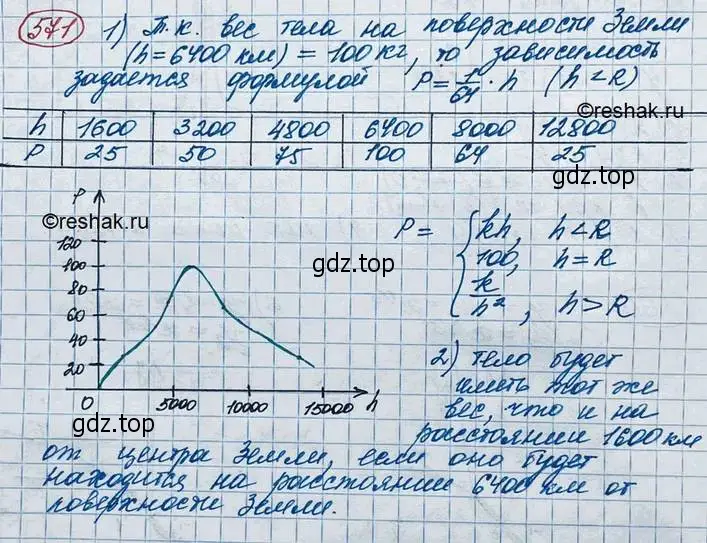 571 1) Т.к. вес тела на поверхности Земли
(h=6400 км) = 100 кг, то зависимость
задается формулой P=1/64·h (h<R)
©reshak.ru
h 1600 3200 4800 6400 8000 12800
P 25 50 75 100 64 25
gdz.top
P
©reshak.ru
120
100
80
60
40
20
0 5000 10000 15000 h
gdz.top
P= { kh, h<R
100, h=R
k/h², h>R
2) тело будет
иметь тот же
вес, что и на
расстоянии 1600 км
от центра Земли, если оно будет
находится на расстоянии 6400 км от
поверхности Земли.
gdz.top